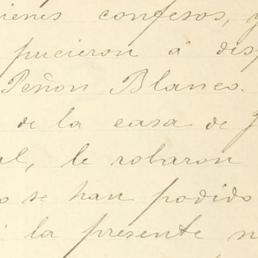 ienes confesos, y
pucieron á disp
Peñon Blanco.
de la casa de G
al, le robaron
o se han podido
i la presente n